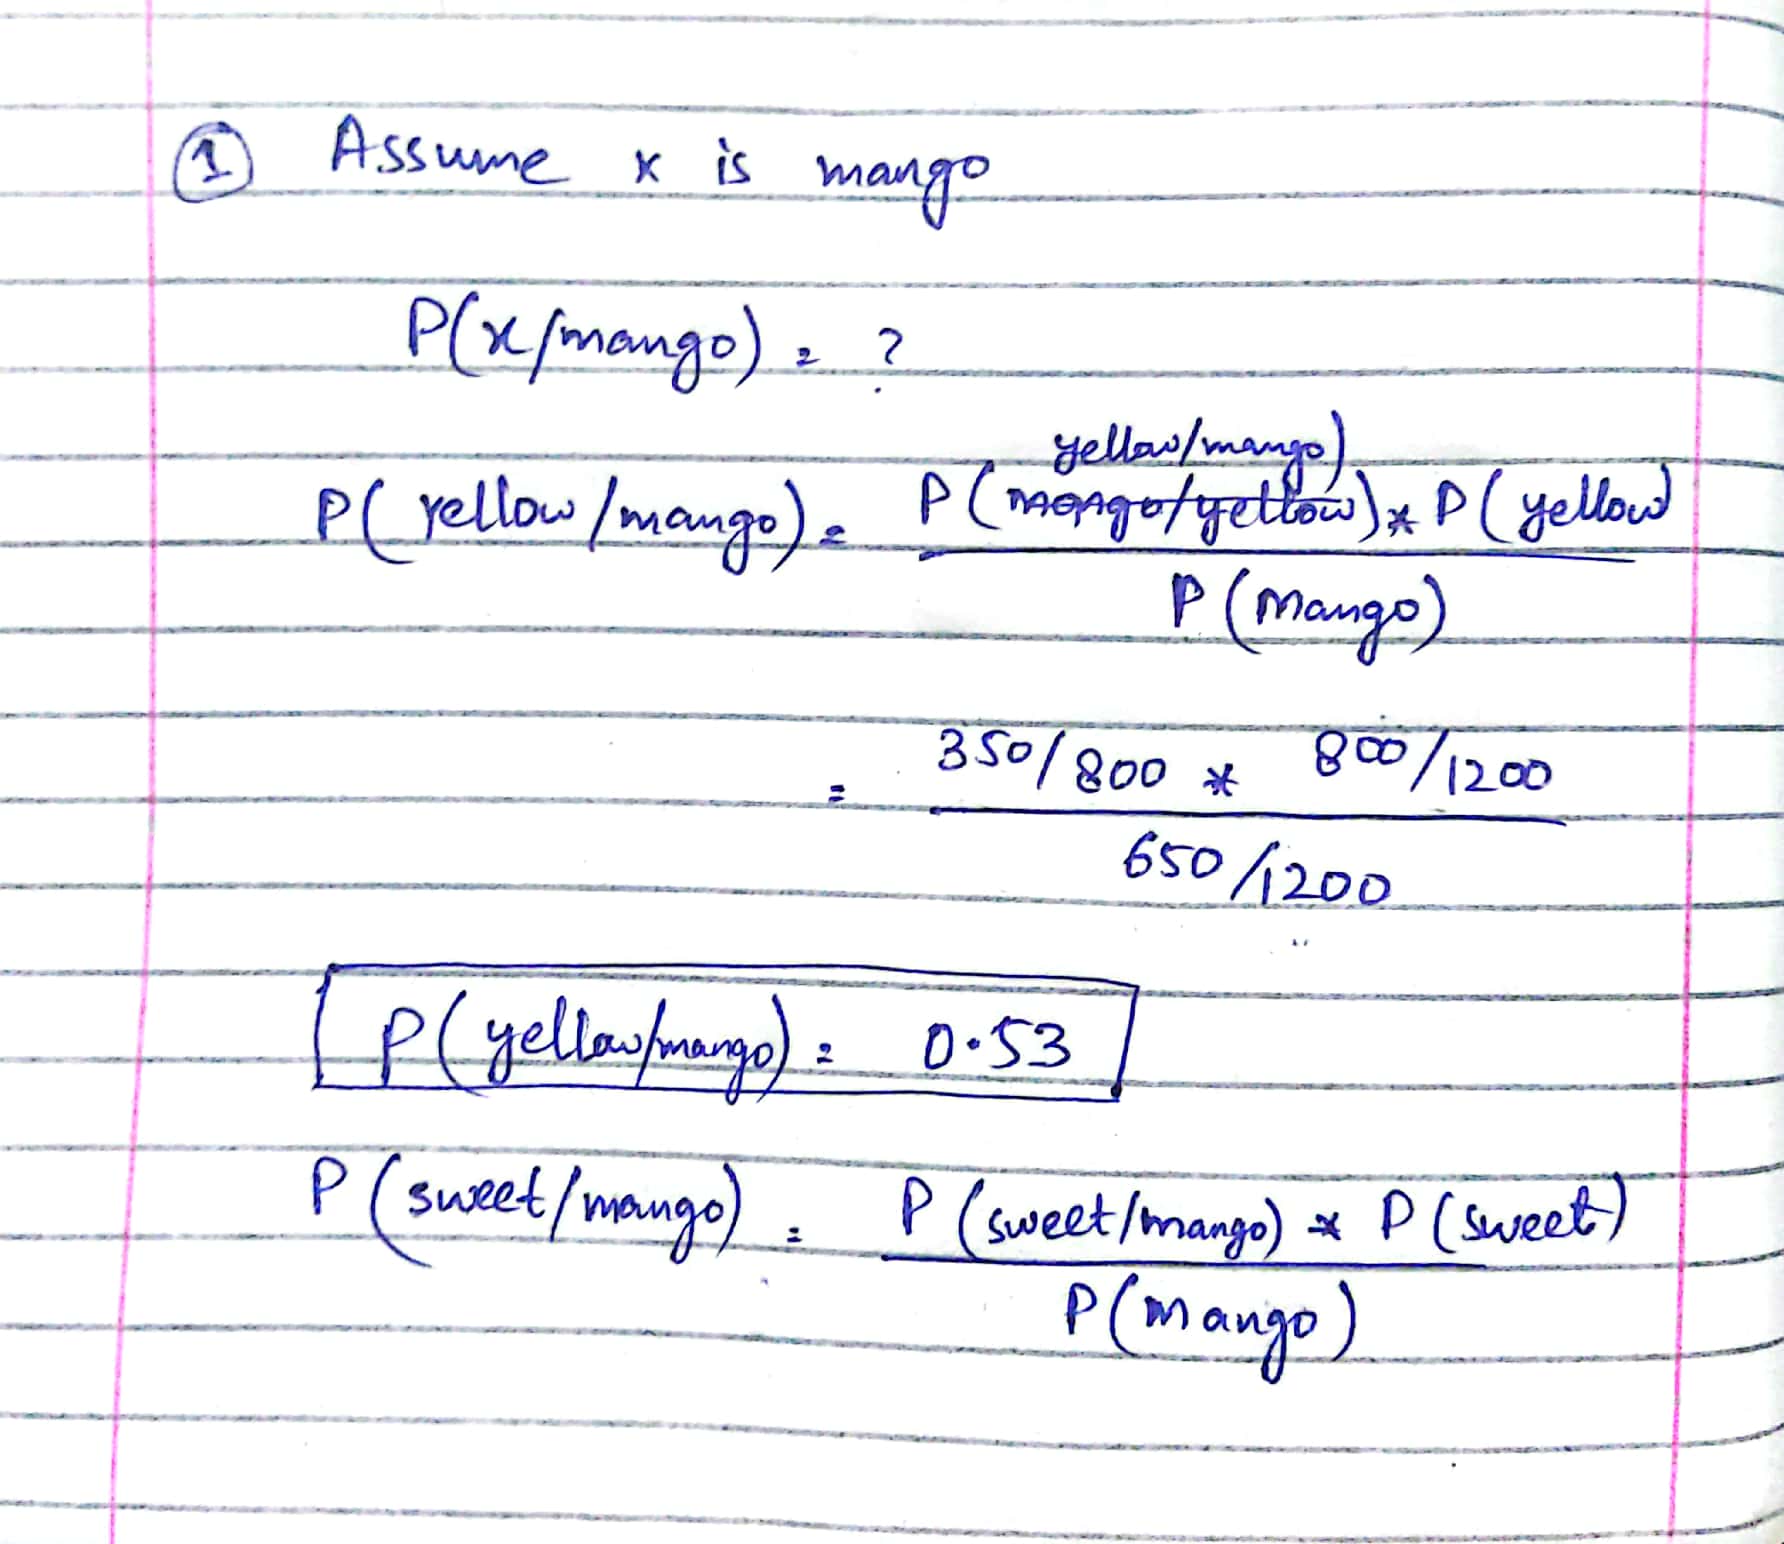 ① Assume x is mango
P(x/mango) = ?
yellow/mango)
P(yellow/mango) = P(mango/yellow) * P(yellow)
P(Mango)
= 350/800 * 800/1200
650/1200
P(yellow/mango) = 0.53
P(sweet/mango) = P(sweet/mango) * P(sweet)
P(mango)